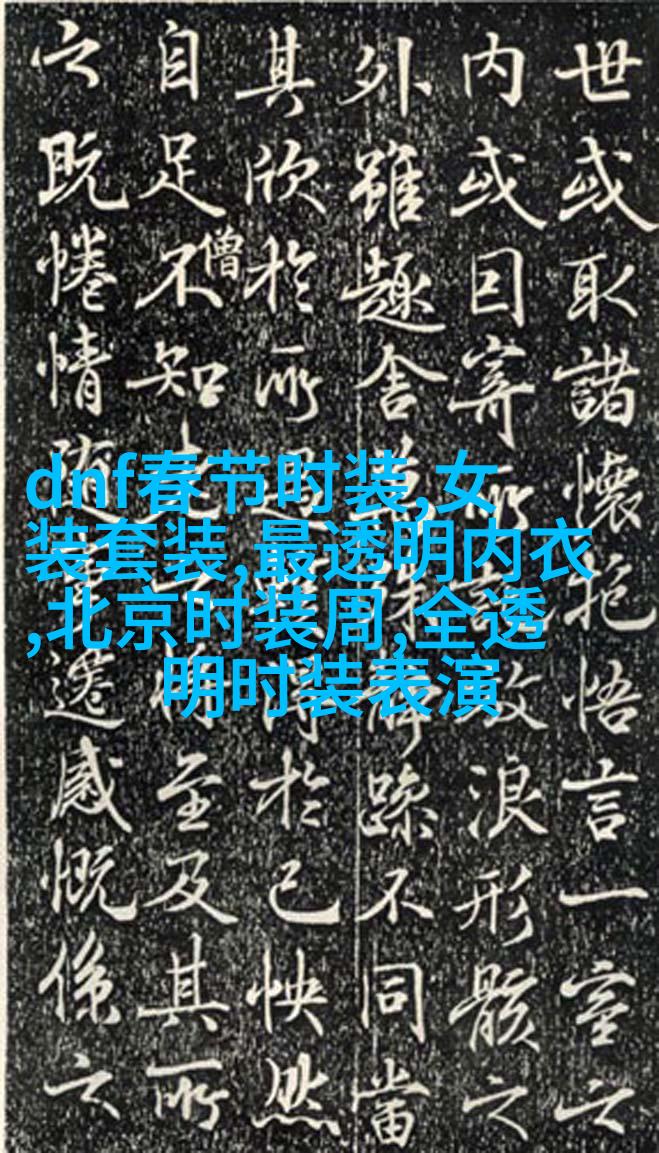 世或取諸懷抱悟言一室之
内或因寄所託放浪形骸之
外雖趣舍萬殊靜躁不同當
其欣於所遇蹔得於己怏然
自足不知老之將至及其所
僧
之既惓情隨事遷感慨係之
dnf春节时装,女
装套装,最透明内衣
,北京时装周,全透
明时装表演